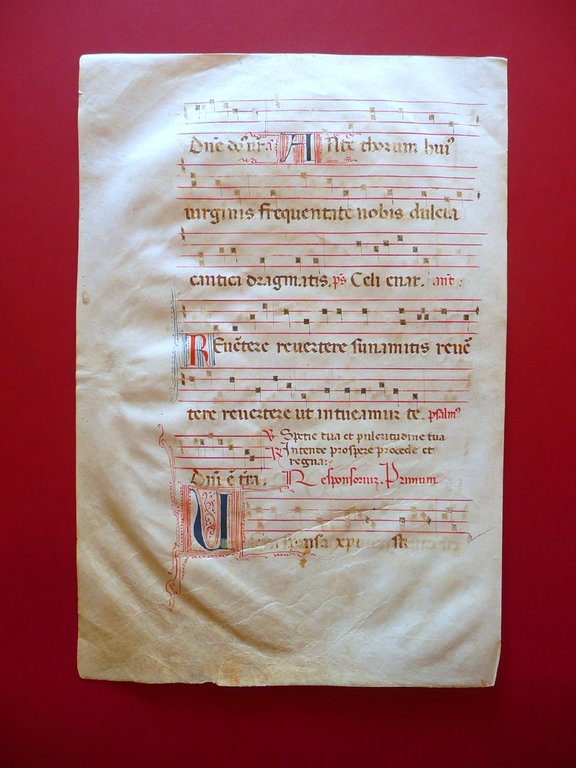 Dñe do⁹ nr̃ã Ante thorum hui⁹
uirginis frequentate nobis dulcia
cantica dragmatis. p̃s Celi enar. ant̃:
Reũtere reuertere sunamitis reuẽ
tere reuertere ut intueamur te. psalm⁹
℣. Spetie tua et pulcritudine tua
℟ Intende prospere procede et
regna:
Dñi ẽ tr̃a. Responsoriuȝ. Primum
sponsa xp̃i